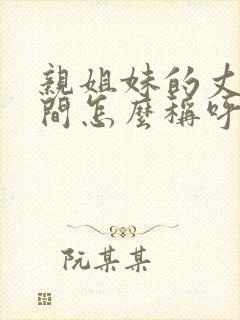 親姐妹的丈
間怎麼稱呼
阮某某